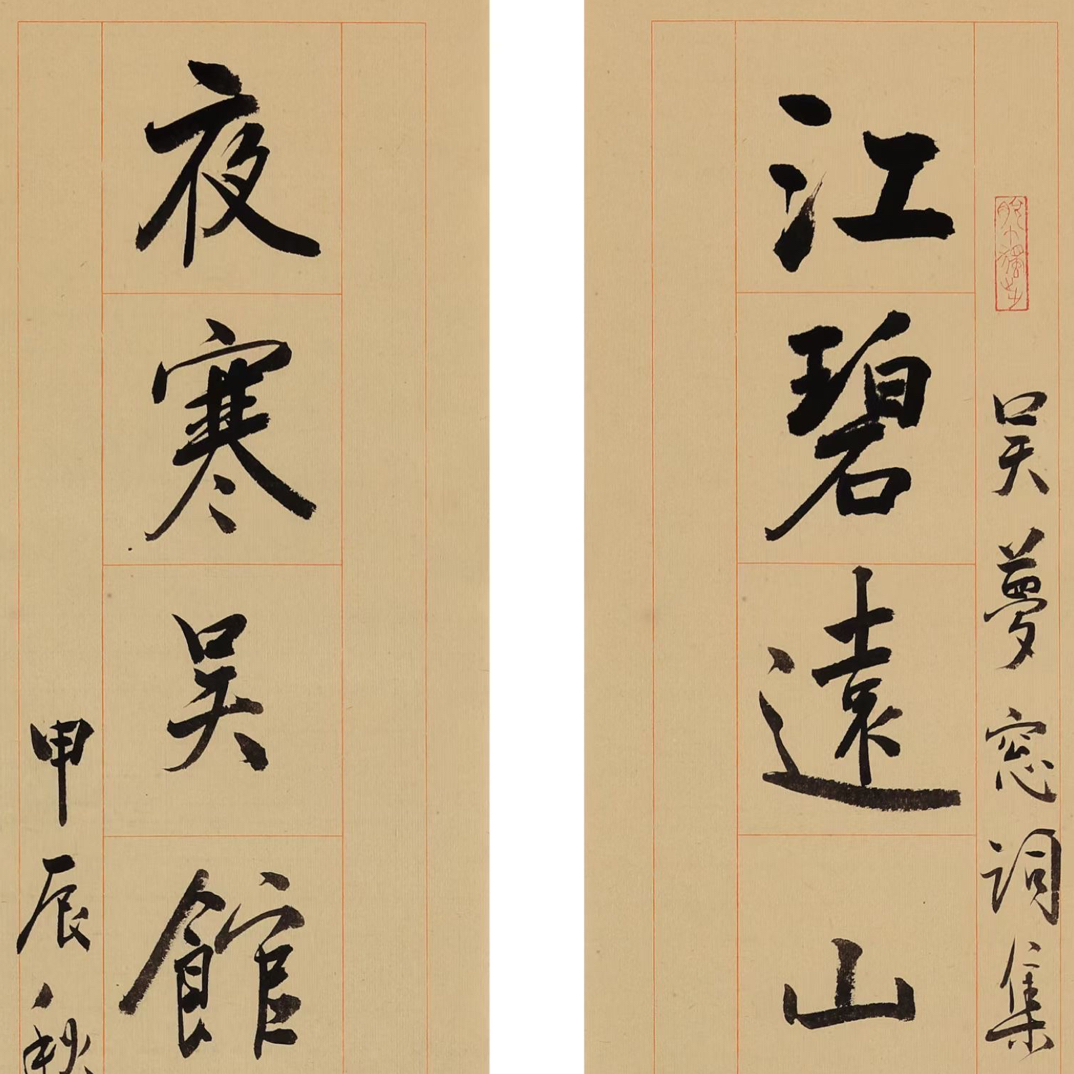 吴夢窓词集
江碧遠山
夜寒吴館
甲辰秋